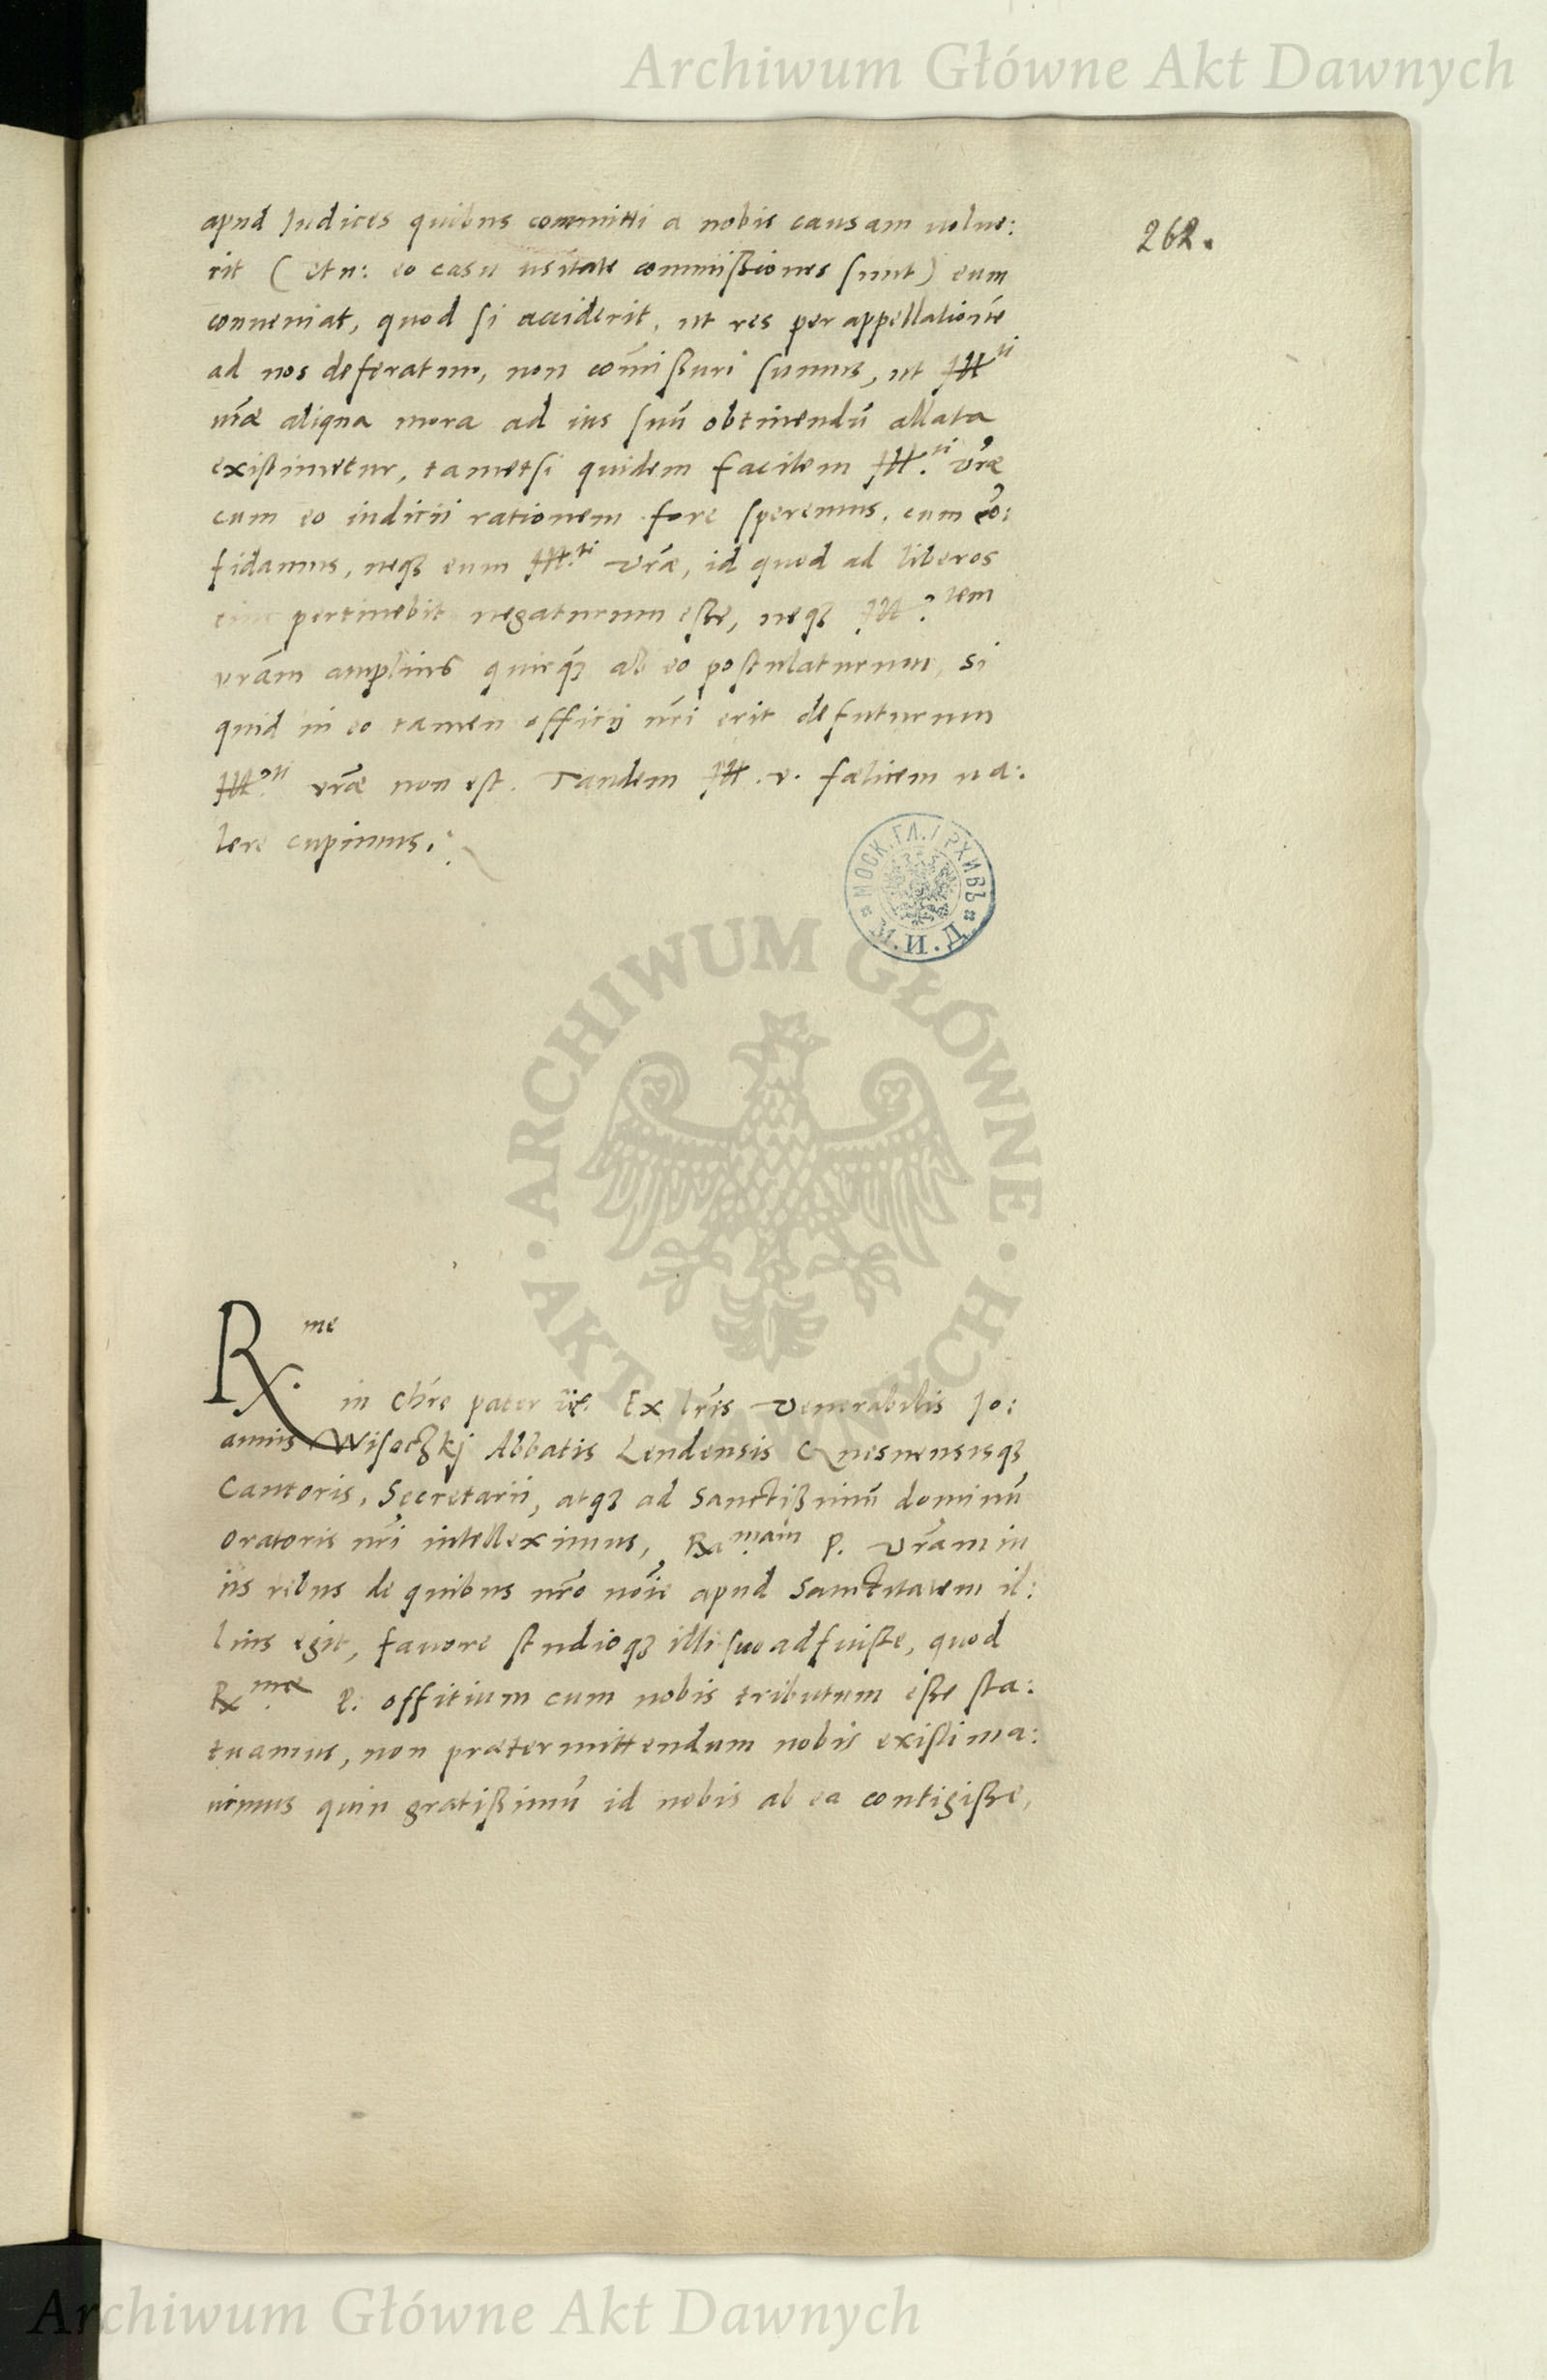 Archiwum Główne Akt Dawnych
262.
apud Iudices quibus committi a nobis causam uolue:
rit (et n: eo casu usitate commißiones sunt) eum
conueniat, quod si acciderit, ut res per appellationē
ad nos deferatur, non com̄ißuri sumus, ut M ti
urāe aliqua mora ad ius suū obtinendū allata
existimetur, tametsi quidem facilem M.ti vrāe
cum eo iudicii rationem fore speremus, cum cō:
fidamus, neqз eum M.ti vrāe, id quod ad liberos
eius pertinebit negaturum eße, neqз M.tem
vrām amplius quicqз ab eo postulaturum, si
quid in eo tamen officij nr̄i erit defuturum
M.ti vrāe non est. Tandem M.v. fælicem ua:
lere cupimus.
МОСК. ГЛ. АРХИВЪ
М.И.Д.
ARCHIWUM GŁÓWNE AKT DAWNYCH
R.me
in Chr̄e pater Ex lr̄is Venerabilis Jo:
annis Wisoczkj Abbatis Lendensis Gnesnensisqз
Cantoris, Secretarii, atqз ad Sanctißimū dominū
Oratoris nr̄i intelleximus, Ra.mam P. Vrām in
iis rebus de quibus nr̄o noīe apud Sanctitatem il:
lius egit, fauore studioqз illi suo adfuiße, quod
R.mæ P. offitium cum nobis tributum eße sta:
tuamus, non prætermittendum nobis existima:
uimus quin gratißimū id nobis ab ea contigiße,
Archiwum Główne Akt Dawnych